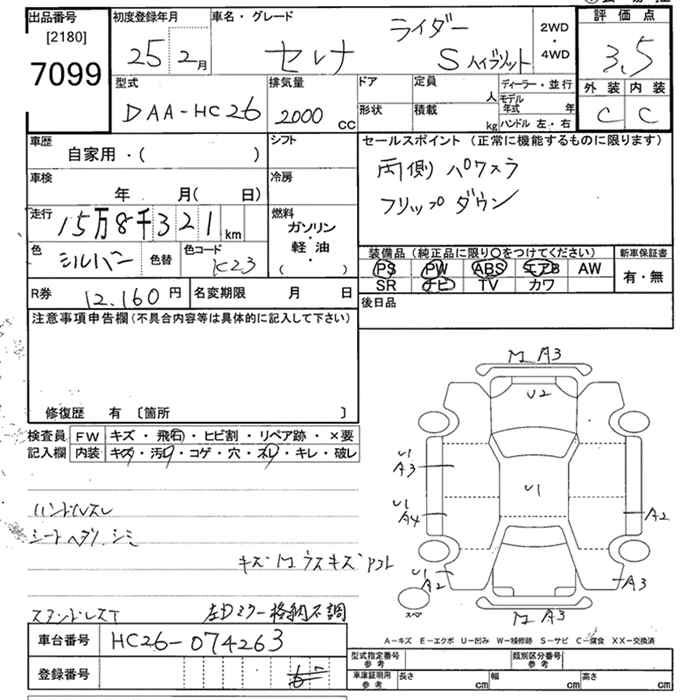 出品番号
[2180]
7099
初度登録年月
25 2月
車名・グレード
セレナ ライダー
Sハイブリット
2WD
・
4WD
評価点
3.5
外装 内装
C C
型式
DAA-HC26
排気量
2000 CC
ドア
形状
定員 人
積載 kg
ディーラー・並行
モデル年式 年
ハンドル 左・右
車歴
自家用・( )
シフト
車検
年 月( 日)
冷房
走行
15万8千321km
燃料
ガソリン
軽・油
( )
色
シルバー
色替
色コード
K23
R券 12,160円
名変期限 月 日
セールスポイント (正常に機能するものに限ります)
両側 パワスラ
フリップダウン
装備品 (純正品に限り〇をつけてください)
PS PW ABS エアB AW
SR ナビ TV カワ
新車保証書
有・無
後日品
注意事項申告欄(不具合内容等は具体的に記入して下さい)
修復歴 有 〔箇所 〕
検査員記入欄
FW キズ・飛石・ヒビ割・リペア跡・×要
内装 キズ・汚レ・コゲ・穴・スレ・キレ・破レ
ハンドルスレ
シートヘタリ シミ
キズ M ウスキズ
スタンドレスT
左Dミラー格納不調
M A3
U2
U1
A3
U1
U1
A4
A2
U1
A2
A3
スペア
M A3
A−キズ E−エクボ U−凹み W−補修跡 S−サビ C−腐食 XX−交換済
車台番号 HC26-074263
登録番号
型式指定番号
参考
類別区分番号
参考
車庫証明用
参考
長さ cm
幅 cm
高さ cm